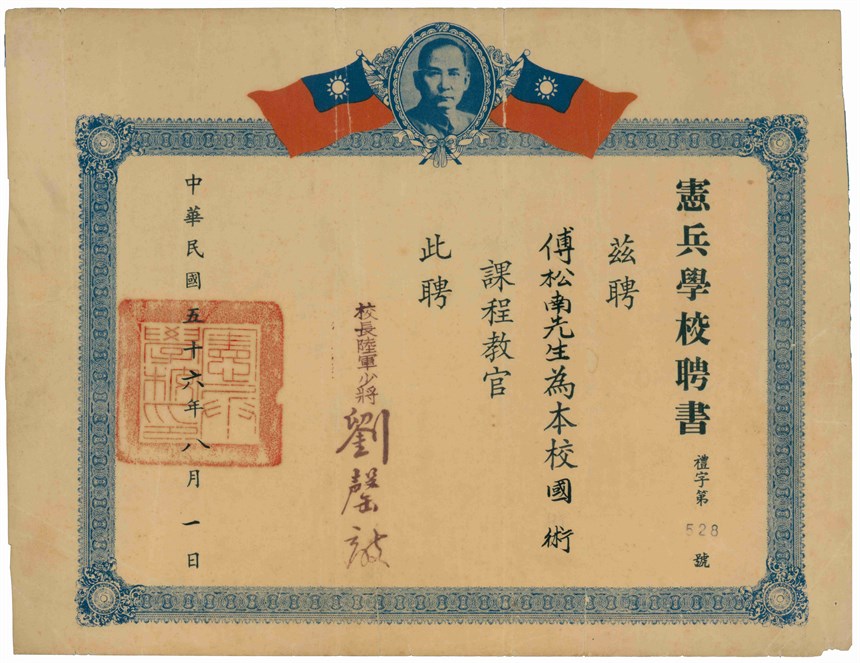 憲兵學校聘書
禮字第528號
茲聘
傅松南先生為本校國術
課程教官
此聘
校長陸軍少將劉罄敵
中華民國五十六年八月一日
憲兵學校印